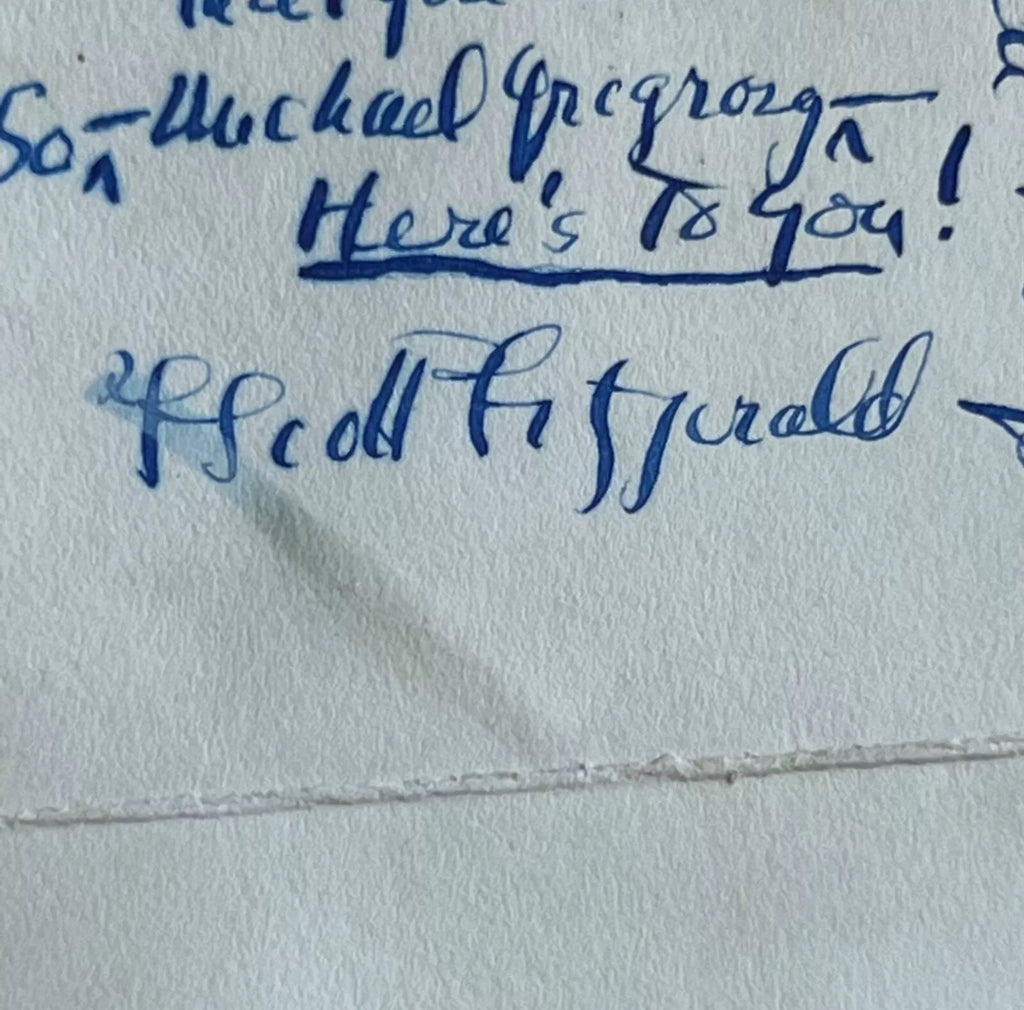 So – Michael Gregrory –
Here's To you!
F Scott Fitzgerald